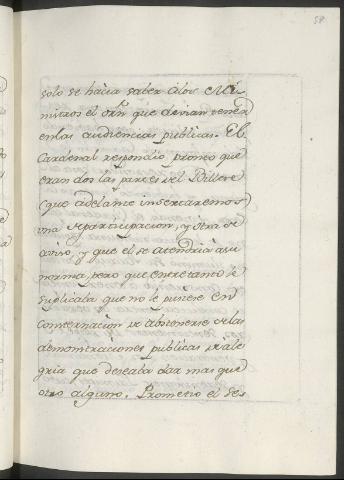 58
solo se hàcia saber àlos Mi-
nistros el orñ que devian tener
enlas audiencias publicas. El
Cardenal respondio promto que
eran dos las partes del Billete
(que adelante insertaremos)
una departicipacion, y otra de
aviso, y que el se atendria asu
norma, pero que entretanto le
suplicaba que no le pusiese en
consternacion de abstenerse delas
demonstraciones publicas de ale-
gria que deseaba dar mas que
otro alguno. Prometio el Se-